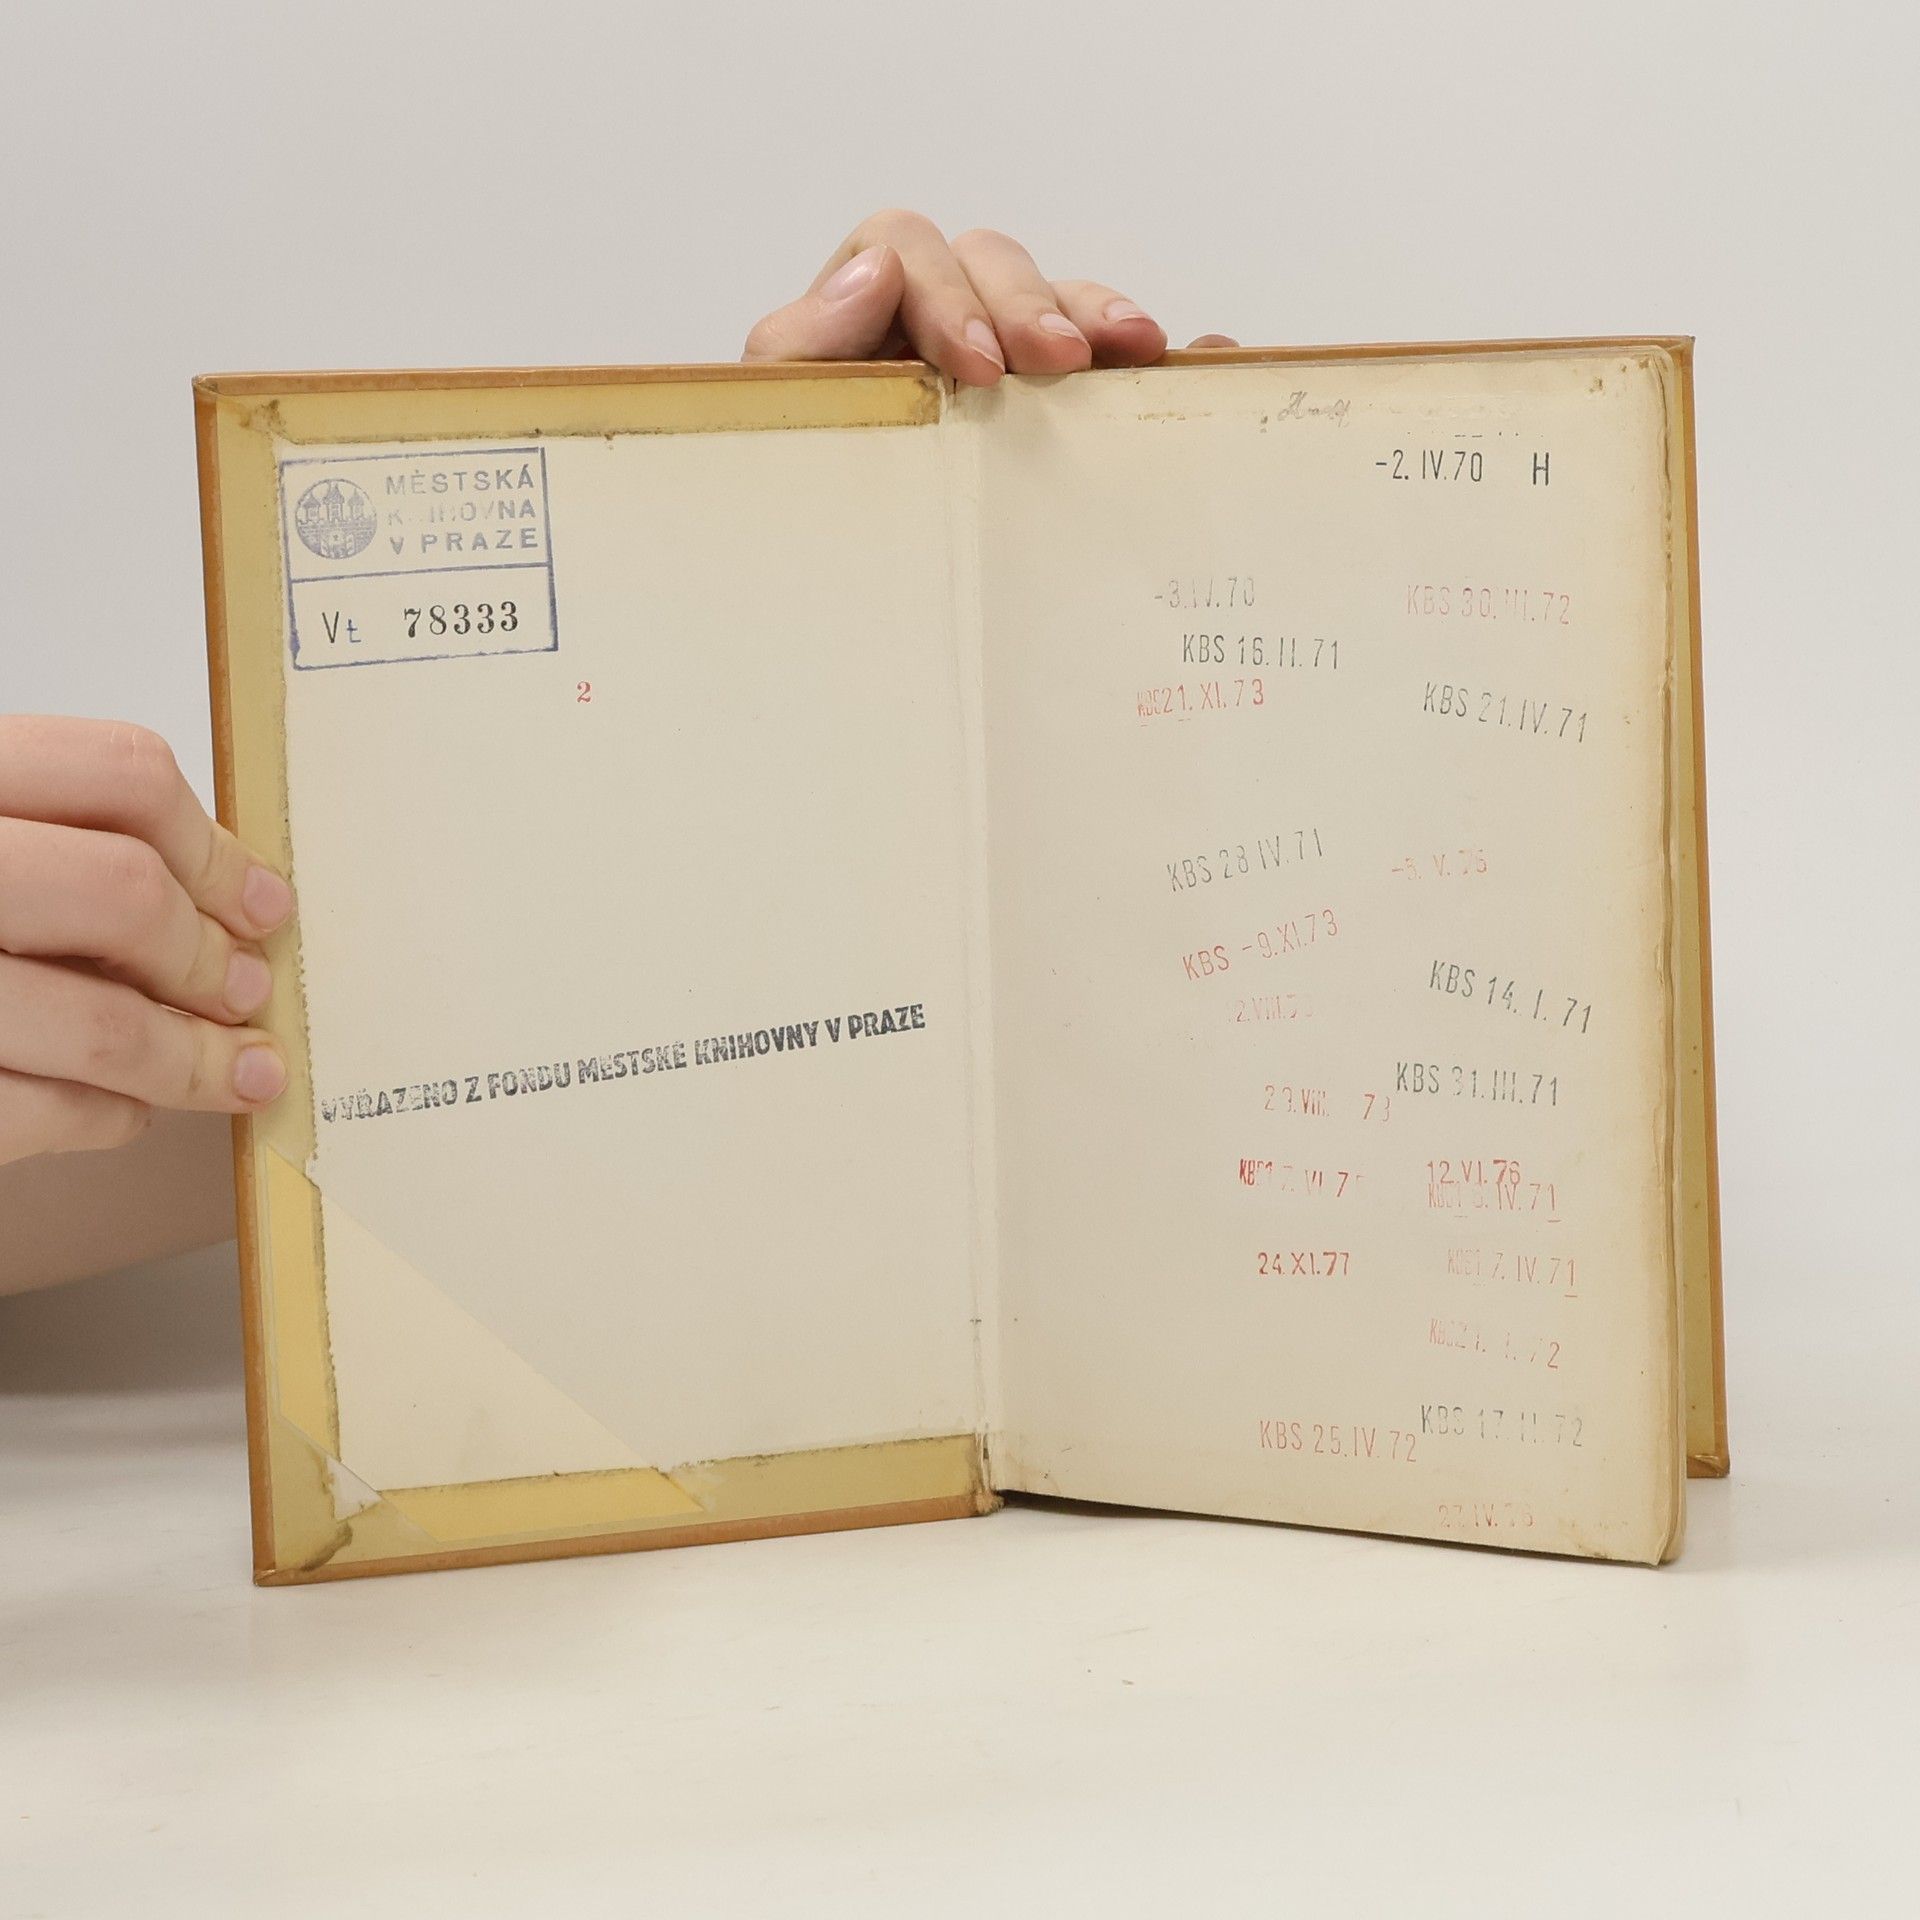 MĚSTSKÁ
KNIHOVNA
V PRAZE
Vt 78333
2
VYŘAZENO Z FONDU MĚSTSKÉ KNIHOVNY V PRAZE
-2. IV. 70 H
-3. IV. 70
KBS 30. III. 72
KBS 16. II. 71
21. XI. 73
KBS 21. IV. 71
KBS 28 IV. 71
-5. V. 76
KBS -9. XI. 73
KBS 14. I. 71
KBS 31. III. 71
12. VI. 76
24. XI. 77
7. IV. 71
KBS 25. IV. 72
KBS 17. II. 72
27. IV. 76